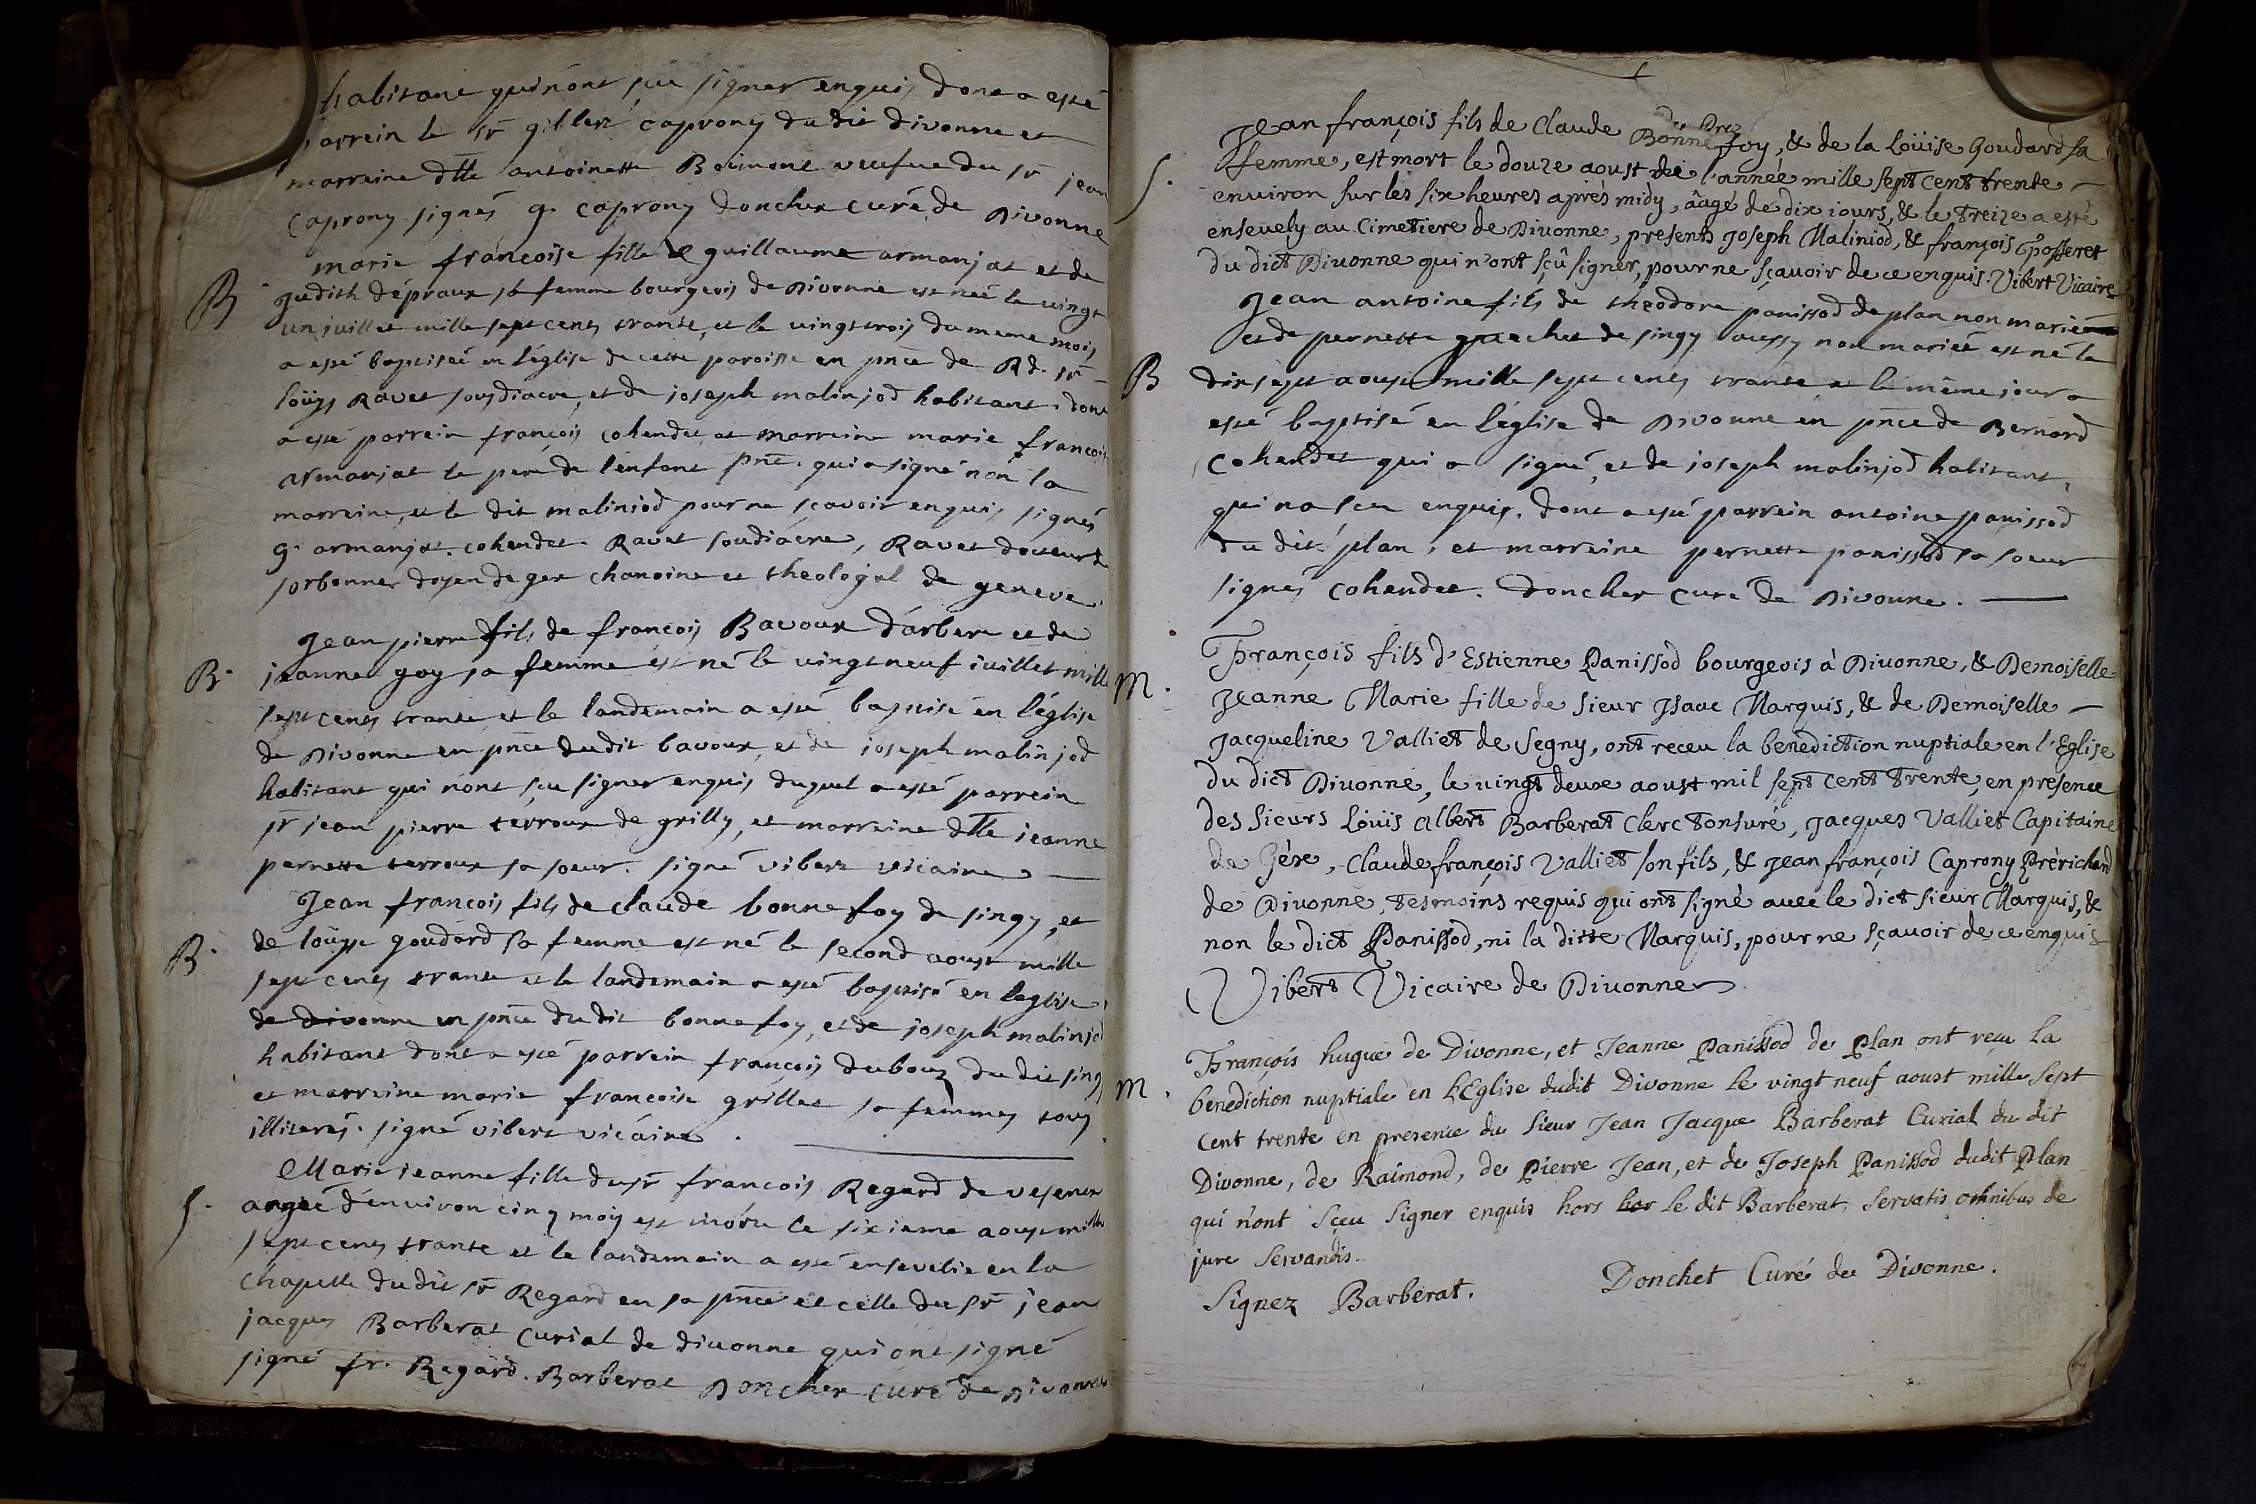 habitant qui n'ont sçu signer enquis dont a esté
parrein le sr gillert caprony du dit divonne et
marreine dlle antoinette Boimont veufue du sr jean
caprony signés g. caprony donchet curé de Divonne
B. marie francoise fille de guillaume armanjat et de
judith dépraux sa femme bourgeois de Divonne est neé le vingt
un juillet mille sept cents trante, et le vingt trois du meme mois
a esté baptiseé en l'église de cette paroisse en pnce de Rd. sr
loüys Ravet sousdiacre, et de joseph malinjod habitant. dont
a esté parrein françois cohendet, et marreine marie francois
armanjat le pere de l'enfant pnt. qui a signé non la
marreine, et le dit malinjod pour ne sçavoir enquis signés
g. armanjat. cohendet. Ravet soudiacre, Ravet docteur de
sorbonne doyen de gex chanoine et théologal de geneve
Jean pierre fils de francois Bavoux d'arbere et de
B. jeanne goy sa femme est né le vingt neuf iuillet mille
sept cents trante, et le landemain a esté baptisé en l'église
de Divonne en pnce du dit bavoux, et de ioseph malinjod
habitant qui n'ont sçu signer enquis duquel a esté parrein
sr jean pierre terroux de grilly, et marreine dlle jeanne
pernette terroux sa soeur. signé vibert vicaire
Jean françois fils de claude bonnefoy de singy, et
B. de loüyse goudard sa femme est né le second aoust mille
sept cents trante et le landemain a esté baptisé en leglise
de divonne en pnce du dit bonnefoy, et de joseph malinjod
habitant dont a esté parrein françois dubouz du dit singy
et marreine marie francoise grillet sa femmes tous
illiterés. signé vibert vicaire.
Marie jeanne fille du sr françois Regard de vesenex
S. angeé d'environ cinq mois est morte le sixieme aoust mille
sept cents trante et le landemain a esté ensevelie en la
chapelle du dit sr Regard en sa pnce et celle du sr jean
jacques Barberat curial de diuonne qui ont signé
signé fr. Regard. Barberat Donchet curé de Divonne
du Prez
Jean françois fils de Claude Bonnefoy, & de la Loüise Goudard sa
S. femme, est mort le douze aoust de l'anneé mille sept cent trente
environ sur les six heures aprés midy, âagé de dix iours, & le treize a esté
enseuely au Cimetiere de Diuonne, presents Joseph Maliniod, & françois Posseret
du dict Diuonne qui n'ont sçû signer, pour ne sçauoir de ce enquis. Vibert Vicaire
Jean antoine fils de théodore panissod de plan non marié
et de pernette de singy aussy non marieé est né le
B dix sept aoust mille sept cents trante et le même jour a
esté baptisé en l'église de Divonne en pnce de Bernard
Cohendet qui a signé, et de joseph malinjod habitant,
qui na sceu enquis. dont a esté parrein antoine panissod
du dit plan, et marreine pernette panissod sa soeur
signés Cohendet. Donchet curé de Divonne.
François fils d'Estienne Panissod bourgeois à Diuonne, & Demoiselle
M. Jeanne Marie fille de sieur Isaac Marquis, & de Demoiselle
Jacqueline Valliet de Segny, ont receu la benediction nuptiale en l'Eglise
du dict Diuonne, le vingt deux aoust mil sept cent trente, en presence
des sieurs Loüis Albert Barberat Clerc tonsuré, Jacques Valliet Capitaine
de Géx, Claude françois Valliet son fils, & Jean françois Caprony Prérichard
de Diuonne, tesmoins requis qui ont signé auec le dict sieur Marquis, &
non le dict Panissod, ni la ditte Marquis, pour ne sçauoir de ce enquis
Vibert Vicaire de Diuonne
François hugue de Divonne, et Jeanne Panissod de Plan ont reçu la
M. benediction nuptiale en L'Eglise dudit Divonne le vingt neuf aoust mille sept
cent trente en presence du sieur Jean Jacque Barberat Curial du dit
Divonne, de Raimond, de Pierre Jean, et de Joseph Panissod dudit Plan
qui n'ont sçeu signer enquis hors hor le dit Barberat. servatis omnibus de
jure servandis.
Signez Barberat. Donchet Curé de Divonne.